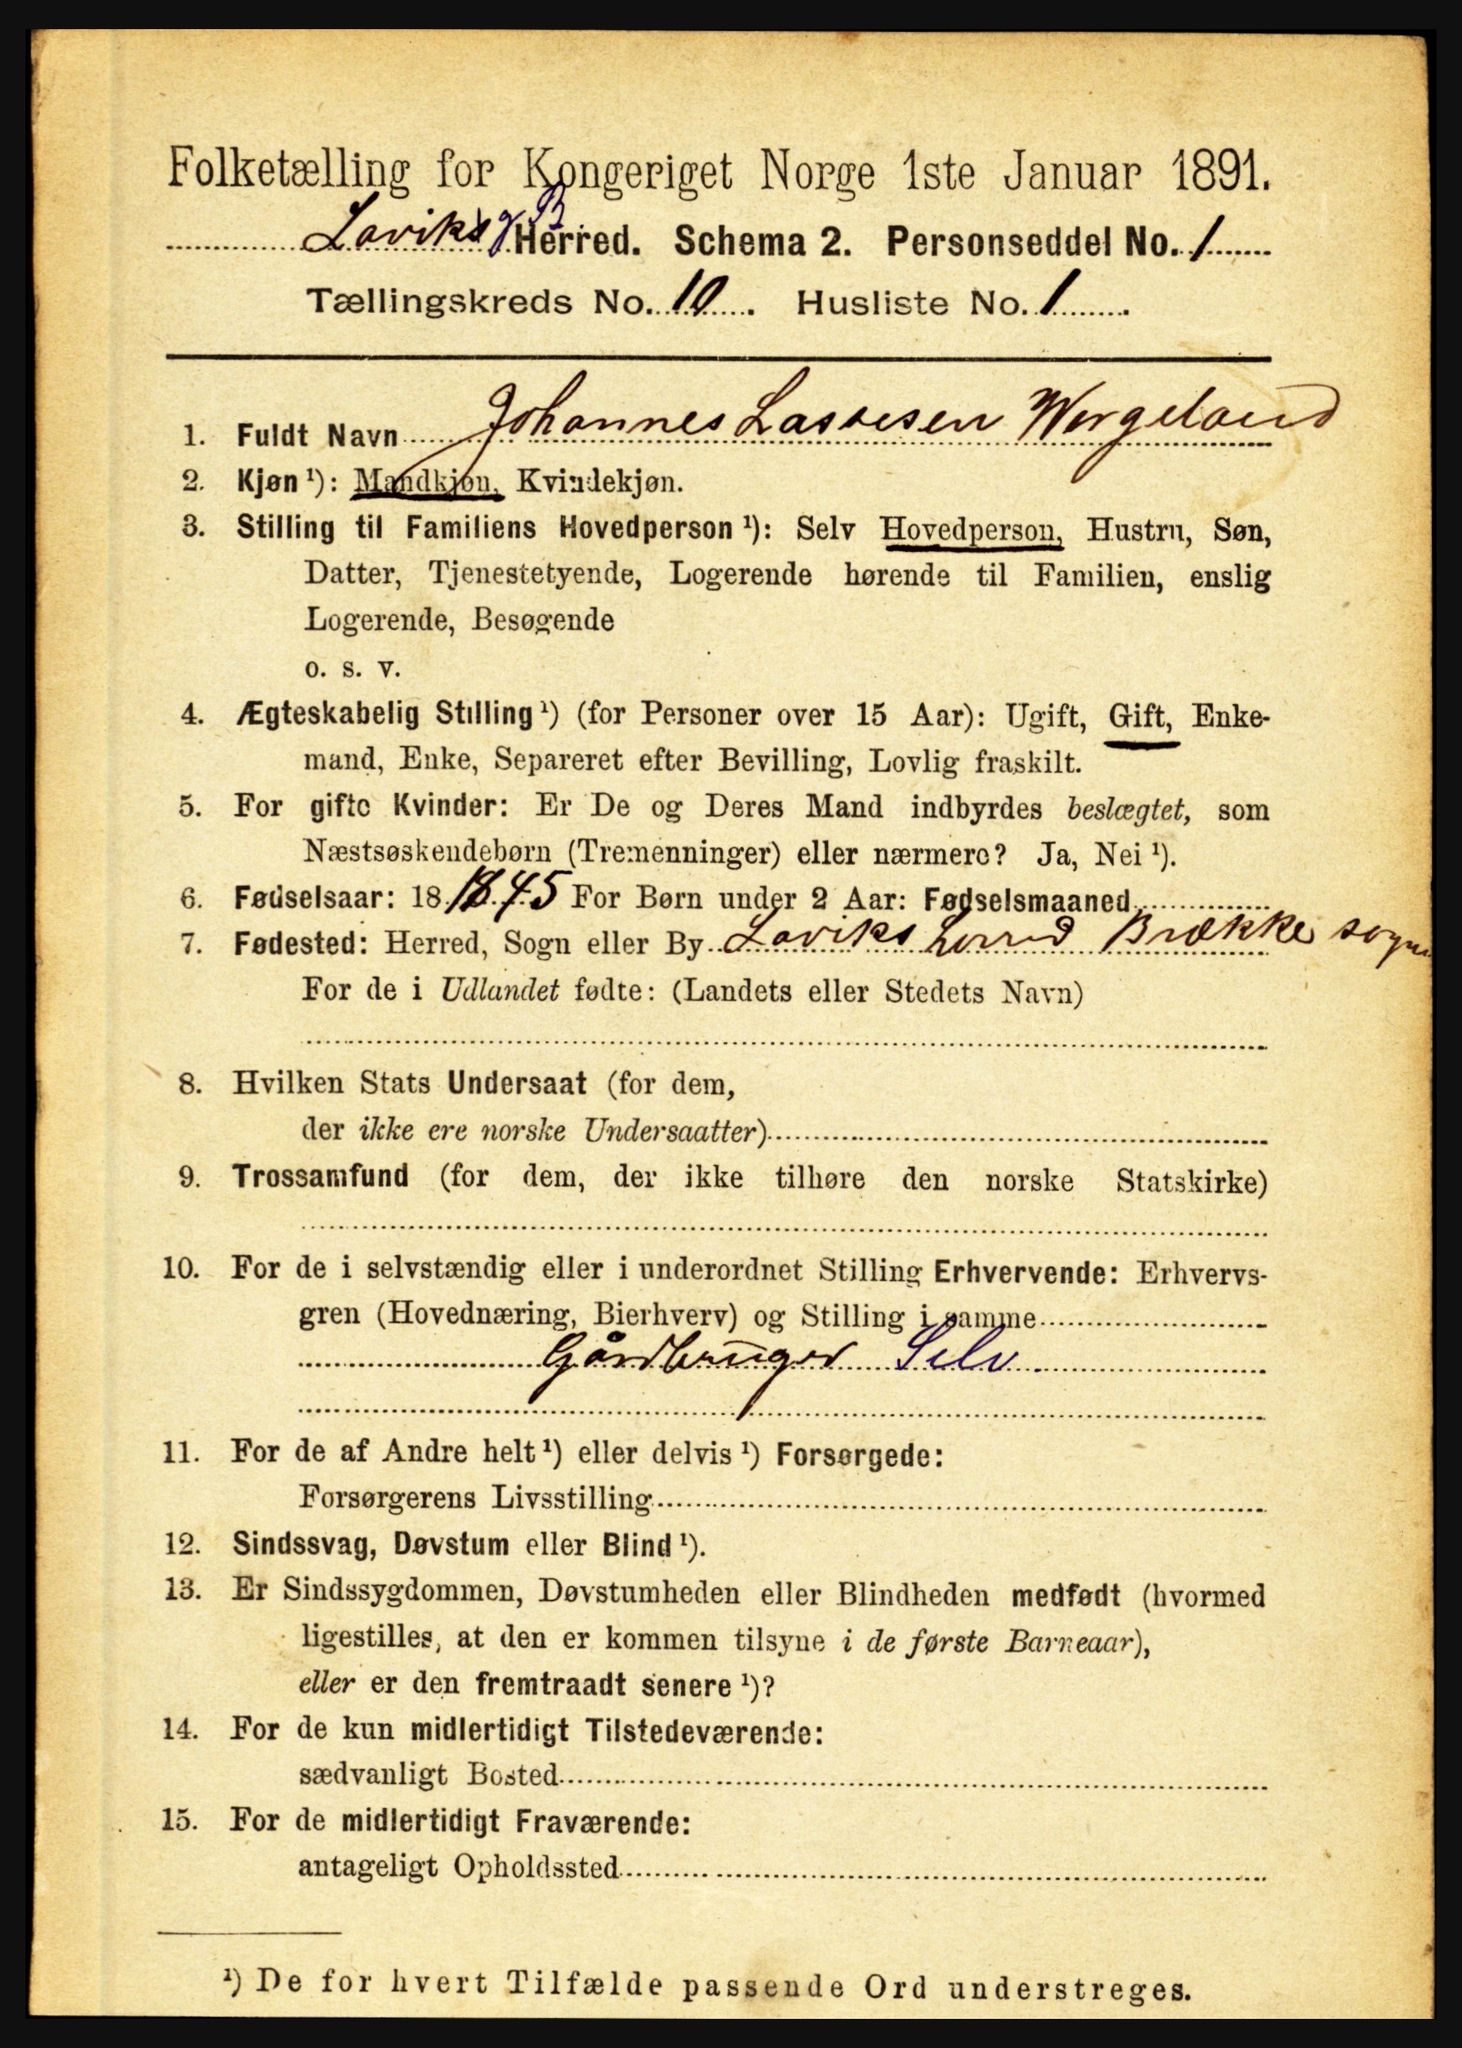 Folketælling for Kongeriget Norge 1ste Januar 1891.
Laviks g B Herred. Schema 2. Personseddel No. 1
Tællingskreds No. 10. Husliste No. 1.
1. Fuldt Navn Johannes Lassesen Wergeland
2. Kjøn ¹): Mandkjøn, Kvindekjøn.
3. Stilling til Familiens Hovedperson ¹): Selv Hovedperson, Hustru, Søn,
Datter, Tjenestetyende, Logerende hørende til Familien, enslig
Logerende, Besøgende
o. s. v.
4. Ægteskabelig Stilling ¹) (for Personer over 15 Aar): Ugift, Gift, Enke-
mand, Enke, Separeret efter Bevilling, Lovlig fraskilt.
5. For gifte Kvinder: Er De og Deres Mand indbyrdes beslægtet, som
Næstsøskendebørn (Tremenninger) eller nærmere? Ja, Nei ¹).
6. Fødselsaar: 18 1845 For Børn under 2 Aar: Fødselsmaaned
7. Fødested: Herred, Sogn eller By Laviks herred Brække sogn
For de i Udlandet fødte: (Landets eller Stedets Navn)
8. Hvilken Stats Undersaat (for dem,
der ikke ere norske Undersaatter)
9. Trossamfund (for dem, der ikke tilhøre den norske Statskirke)
10. For de i selvstændig eller i underordnet Stilling Erhvervende: Erhvervs-
gren (Hovednæring, Bierhverv) og Stilling i samme
Gårdbruger Selv.
11. For de af Andre helt ¹) eller delvis ¹) Forsørgede:
Forsørgerens Livsstilling
12. Sindssvag, Døvstum eller Blind ¹).
13. Er Sindssygdommen, Døvstumheden eller Blindheden medfødt (hvormed
ligestilles, at den er kommen tilsyne i de første Barneaar),
eller er den fremtraadt senere ¹)?
14. For de kun midlertidigt Tilstedeværende:
sædvanligt Bosted
15. For de midlertidigt Fraværende:
antageligt Opholdssted
¹) De for hvert Tilfælde passende Ord understreges.